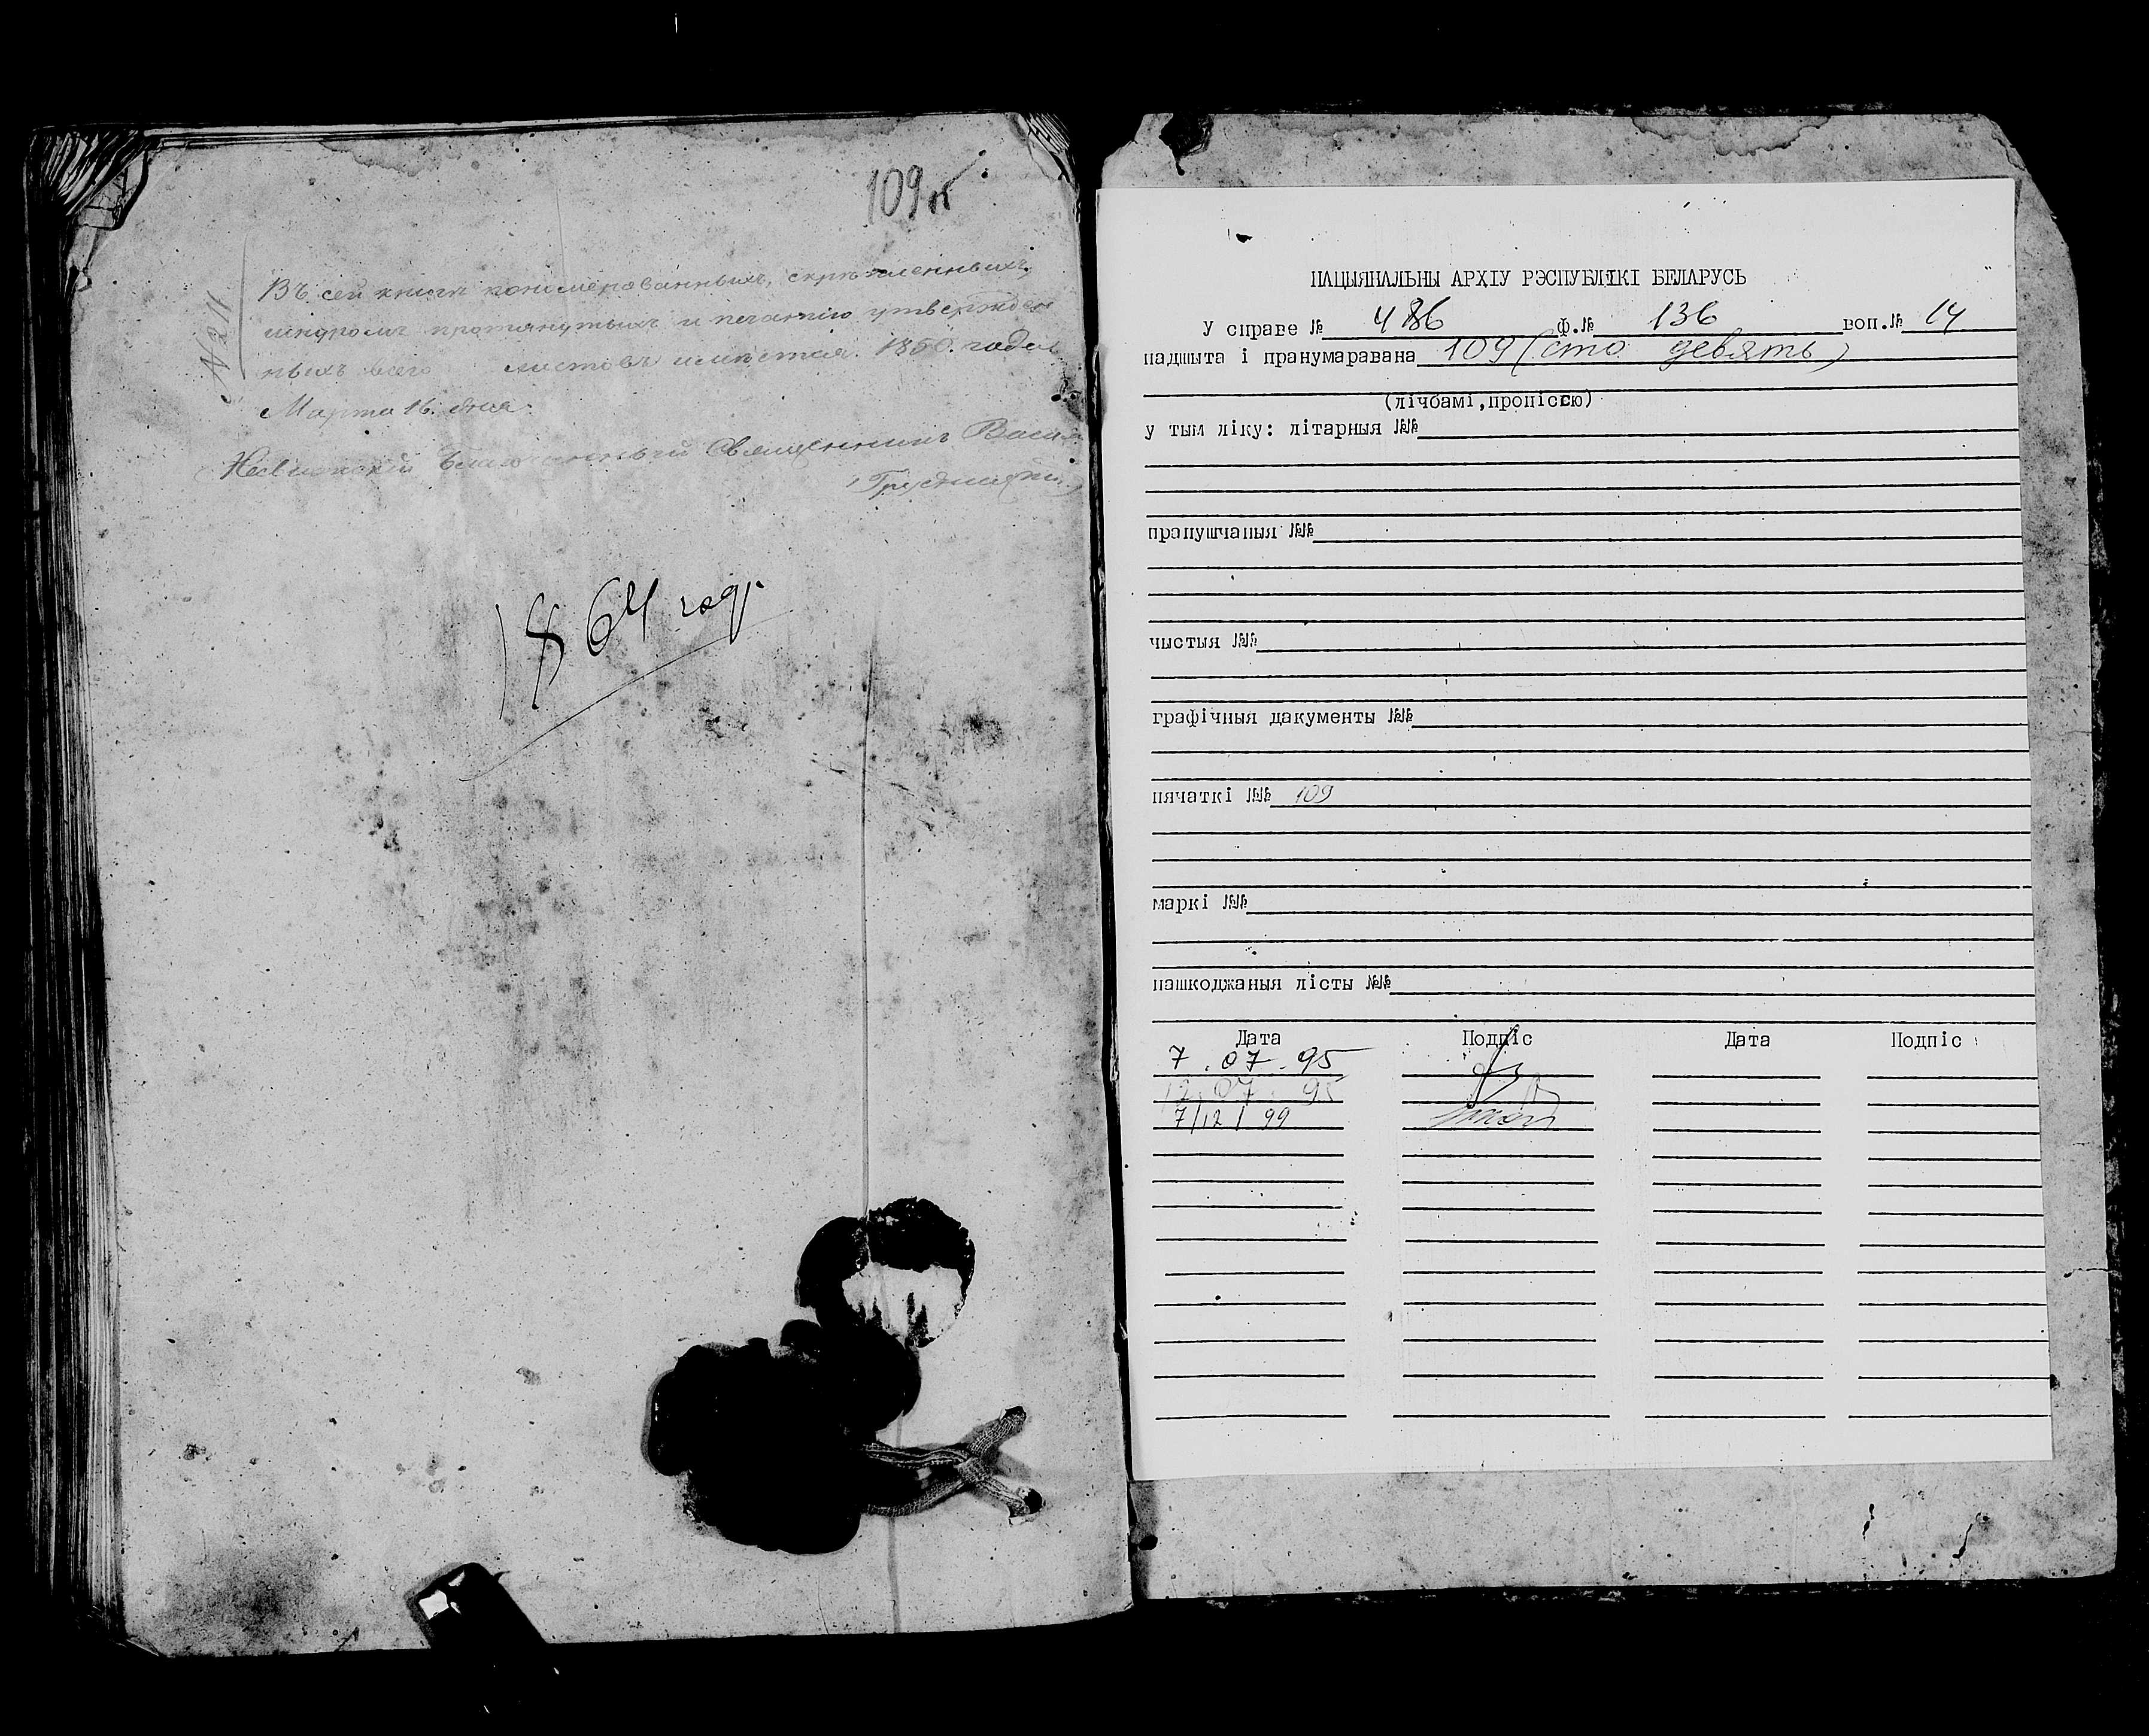 109
№ 211
Въ сей книгѣ пономерованныхъ, скрѣпленныхъ,
шнуромъ протянутыхъ и печатію утвержден
ныхъ всего листовъ имѣется. 1850. года
Марта 16. дня
Благочинный Священникъ Васи
1864 год
НАЦЫЯНАЛЬНЫ АРХІУ РЭСПУБЛІКІ БЕЛАРУСЬ
У справе № 486 ф.№ 136 воп.№ 14
падшыта і пранумаравана 109 (сто девять)
(лічбамі,пропіссю)
у тым ліку: літарныя №№
прапушчаныя №№
чыстыя №№
графічныя дакументы №№
пячаткі №№ 109
маркі №№
пашкоджаныя лісты №№
Дата Подпіс Дата Подпіс
7.07.95
12.07.95
7/12/99